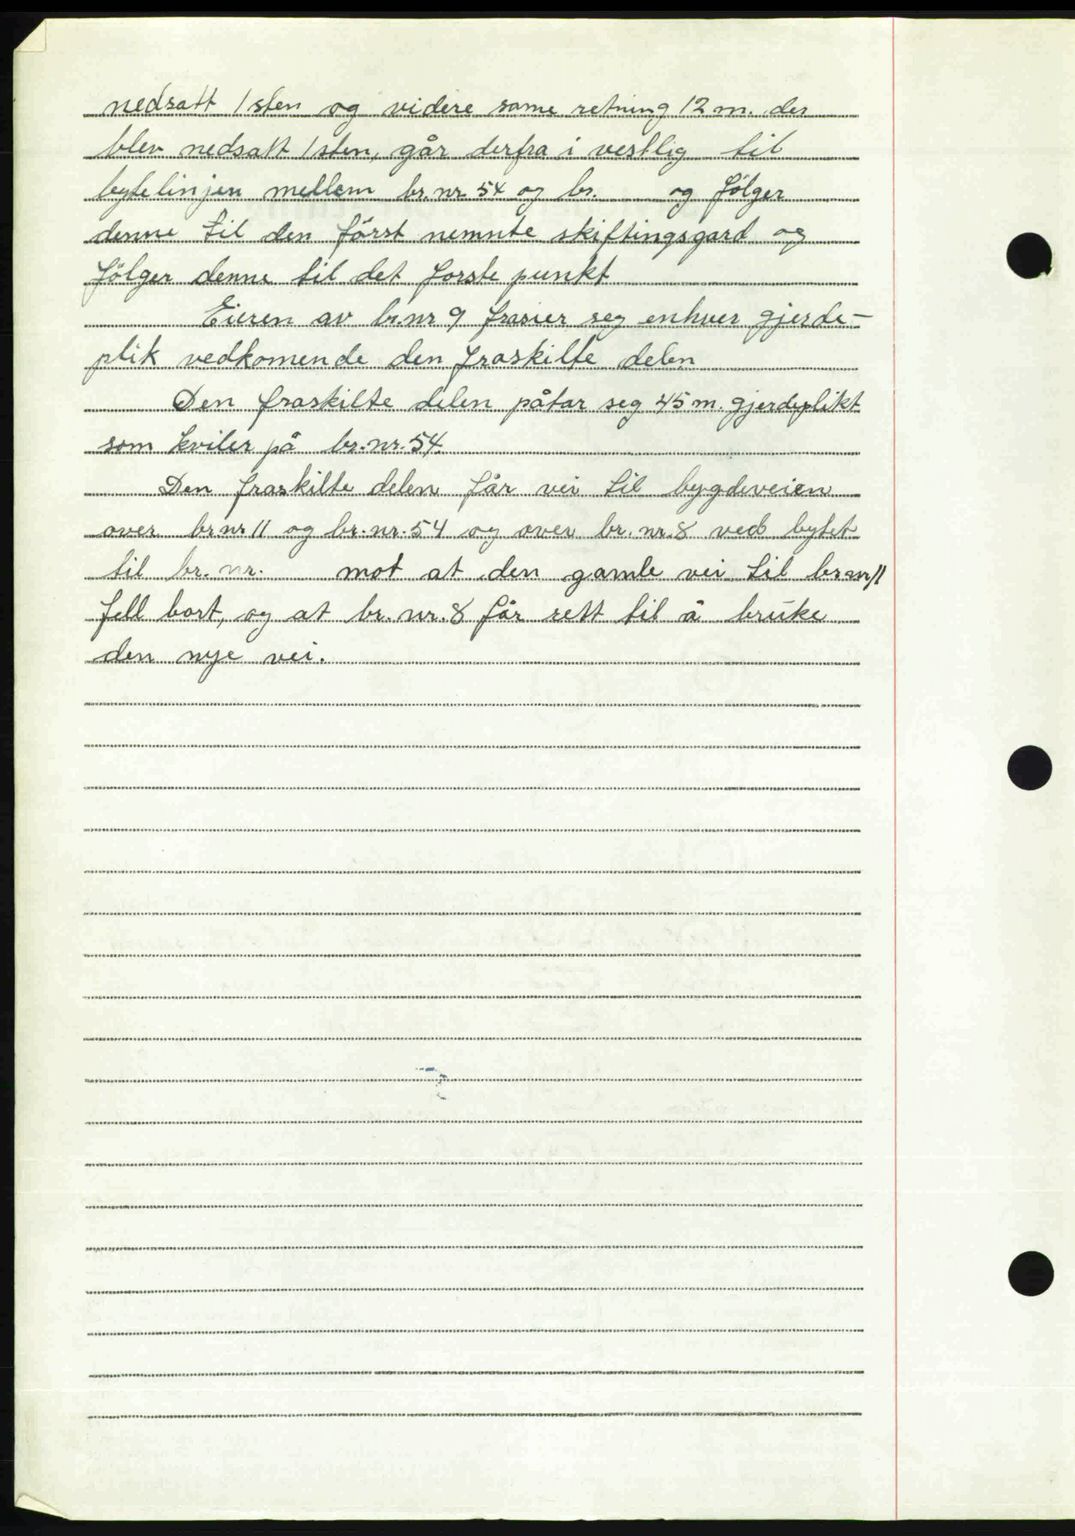 nedsatt 1 sten og videre same retning 12 m. der
blev nedsatt 1 sten, går derfra i vestlig til
bytelinjen mellem br. nr. 54 og br. og følger
denne til den först nemnte skiftingsgard og
fölger denne til det forste punkt
Eieren av br.nr 9 frasier seg enhver gjerde-
plik vedkomende den fraskilte delen
Den fraskilte delen påtar seg 45 m. gjerdeplikt
som kviler på br. nr. 54.
Den fraskilte delen får vei til bygdeveien
over br nr 11 og br. nr. 54 og over br. nr. 8 ved bytet
til br. nr. mot at den gamle vei til br nr 11
fell bort, og at br. nr. 8 får rett til å bruke
den nye vei.